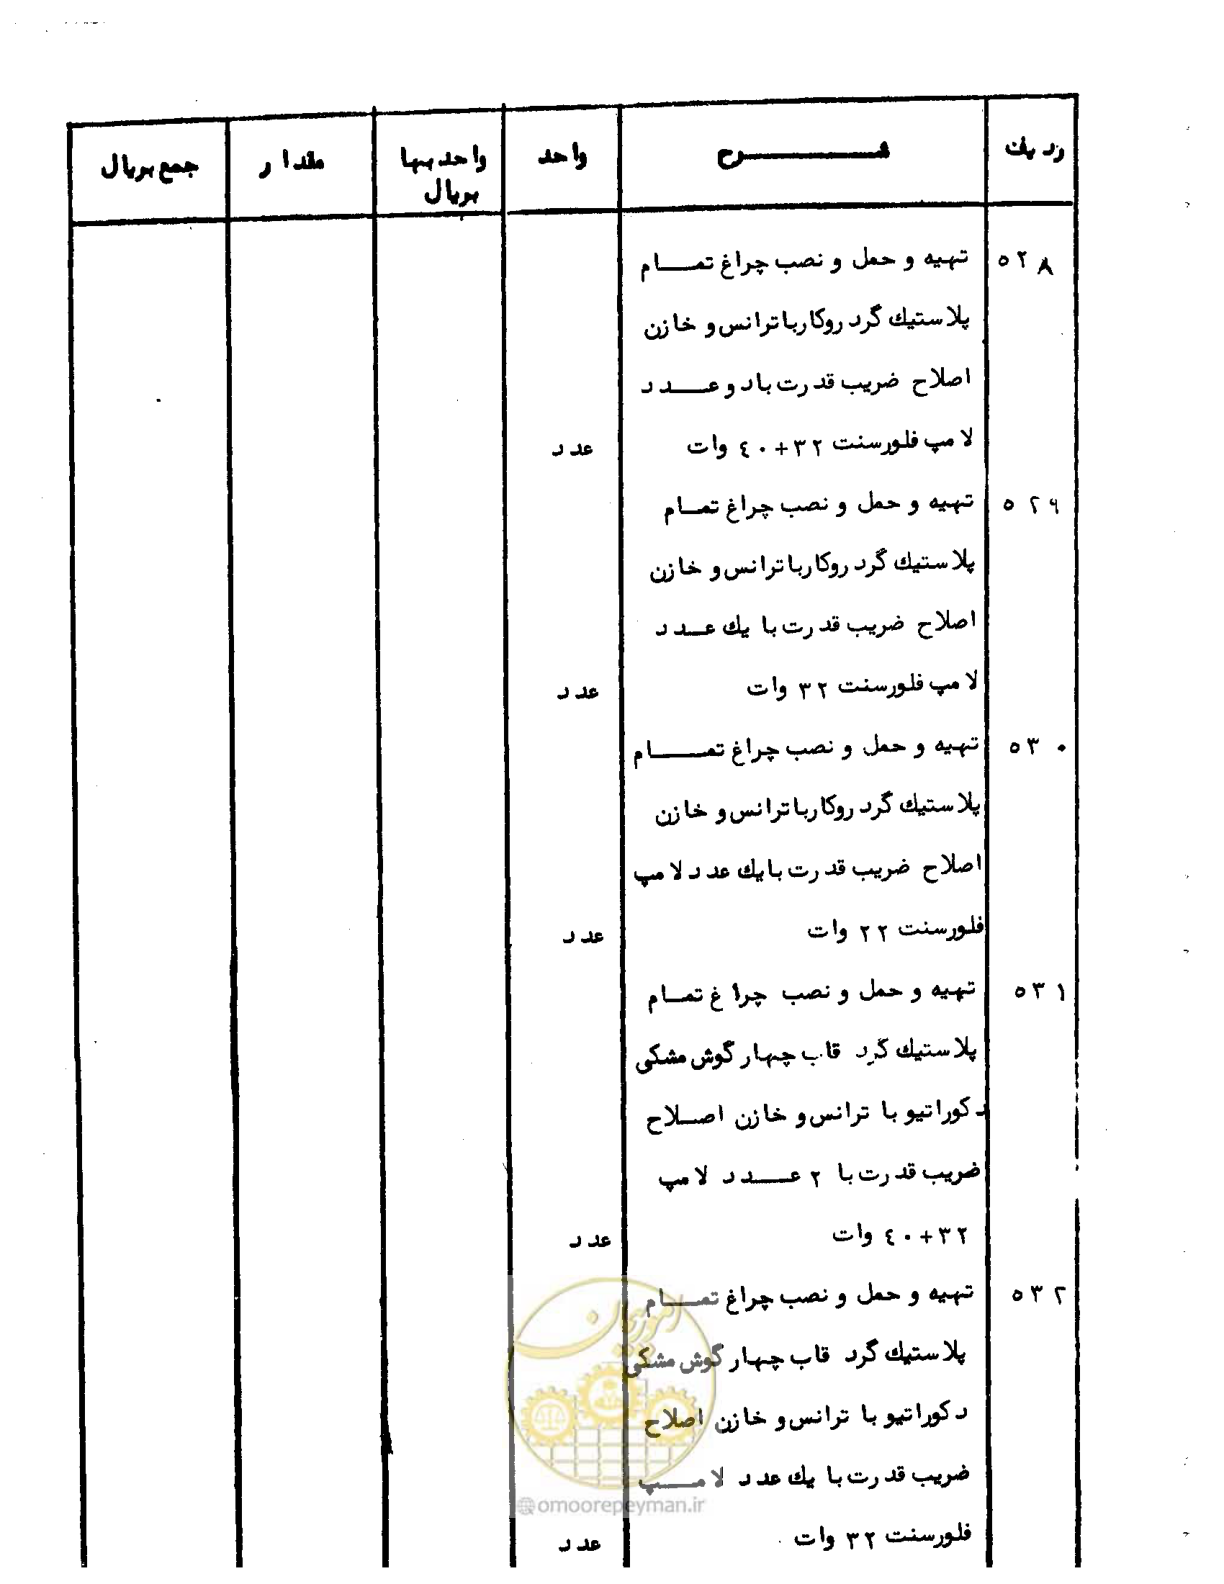 ردیف شرح واحد واحد بها مقدار جمع بریال
بریال
۵۲۸ تهیه و حمل و نصب چراغ تمام
پلاستیك گرد روکار با ترانس و خازن
اصلاح ضریب قدرت با دو عدد
لامپ فلورسنت ۳۲+۴۰ وات عدد
۵۲۹ تهیه و حمل و نصب چراغ تمام
پلاستیك گرد روکار با ترانس و خازن
اصلاح ضریب قدرت با یك عدد
لامپ فلورسنت ۳۲ وات عدد
۵۳۰ تهیه و حمل و نصب چراغ تمام
پلاستیك گرد روکار با ترانس و خازن
اصلاح ضریب قدرت با یك عدد لامپ
فلورسنت ۲۲ وات عدد
۵۳۱ تهیه و حمل و نصب چراغ تمام
پلاستیك گرد قاب چهار گوش مشکی
دکوراتیو با ترانس و خازن اصلاح
ضریب قدرت با ۲ عدد لامپ
۳۲+۴۰ وات عدد
۵۳۲ تهیه و حمل و نصب چراغ تمام
پلاستیك گرد قاب چهار گوش مشکی
دکوراتیو با ترانس و خازن اصلاح
ضریب قدرت با یك عدد لامپ
فلورسنت ۳۲ وات عدد
امور پیمان
omoorepeyman.ir